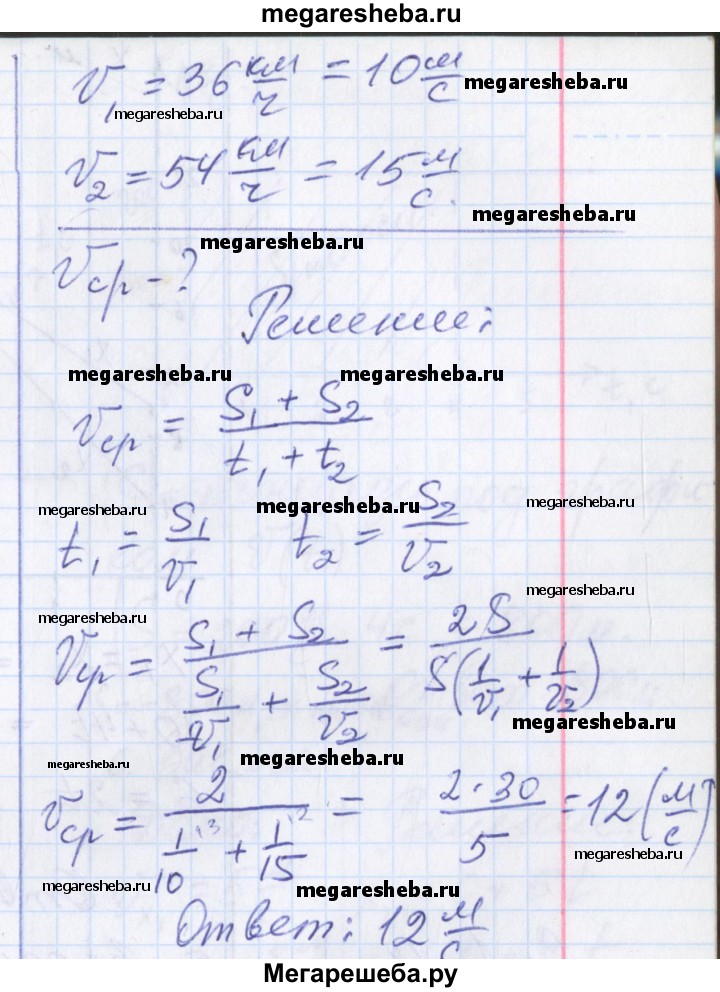 megaresheba.ru
V₁ = 36 км/ч = 10 м/с megaresheba.ru
megaresheba.ru
V₂ = 54 км/ч = 15 м/с.
megaresheba.ru
megaresheba.ru
Vср - ?
Решение:
megaresheba.ru megaresheba.ru
Vср = (S₁ + S₂)/(t₁ + t₂)
megaresheba.ru megaresheba.ru megaresheba.ru
t₁ = S₁/V₁ t₂ = S₂/V₂
megaresheba.ru megaresheba.ru
Vср = (S₁ + S₂)/(S₁/V₁ + S₂/V₂) = 2S/(S(1/V₁ + 1/V₂))
megaresheba.ru
megaresheba.ru megaresheba.ru
Vср = 2/(1/10 ⁽³ + 1/15 ⁽²) = 2·30/5 = 12 (м/с)
megaresheba.ru
megaresheba.ru megaresheba.ru
Ответ: 12 м/с
Мегарешеба.ру